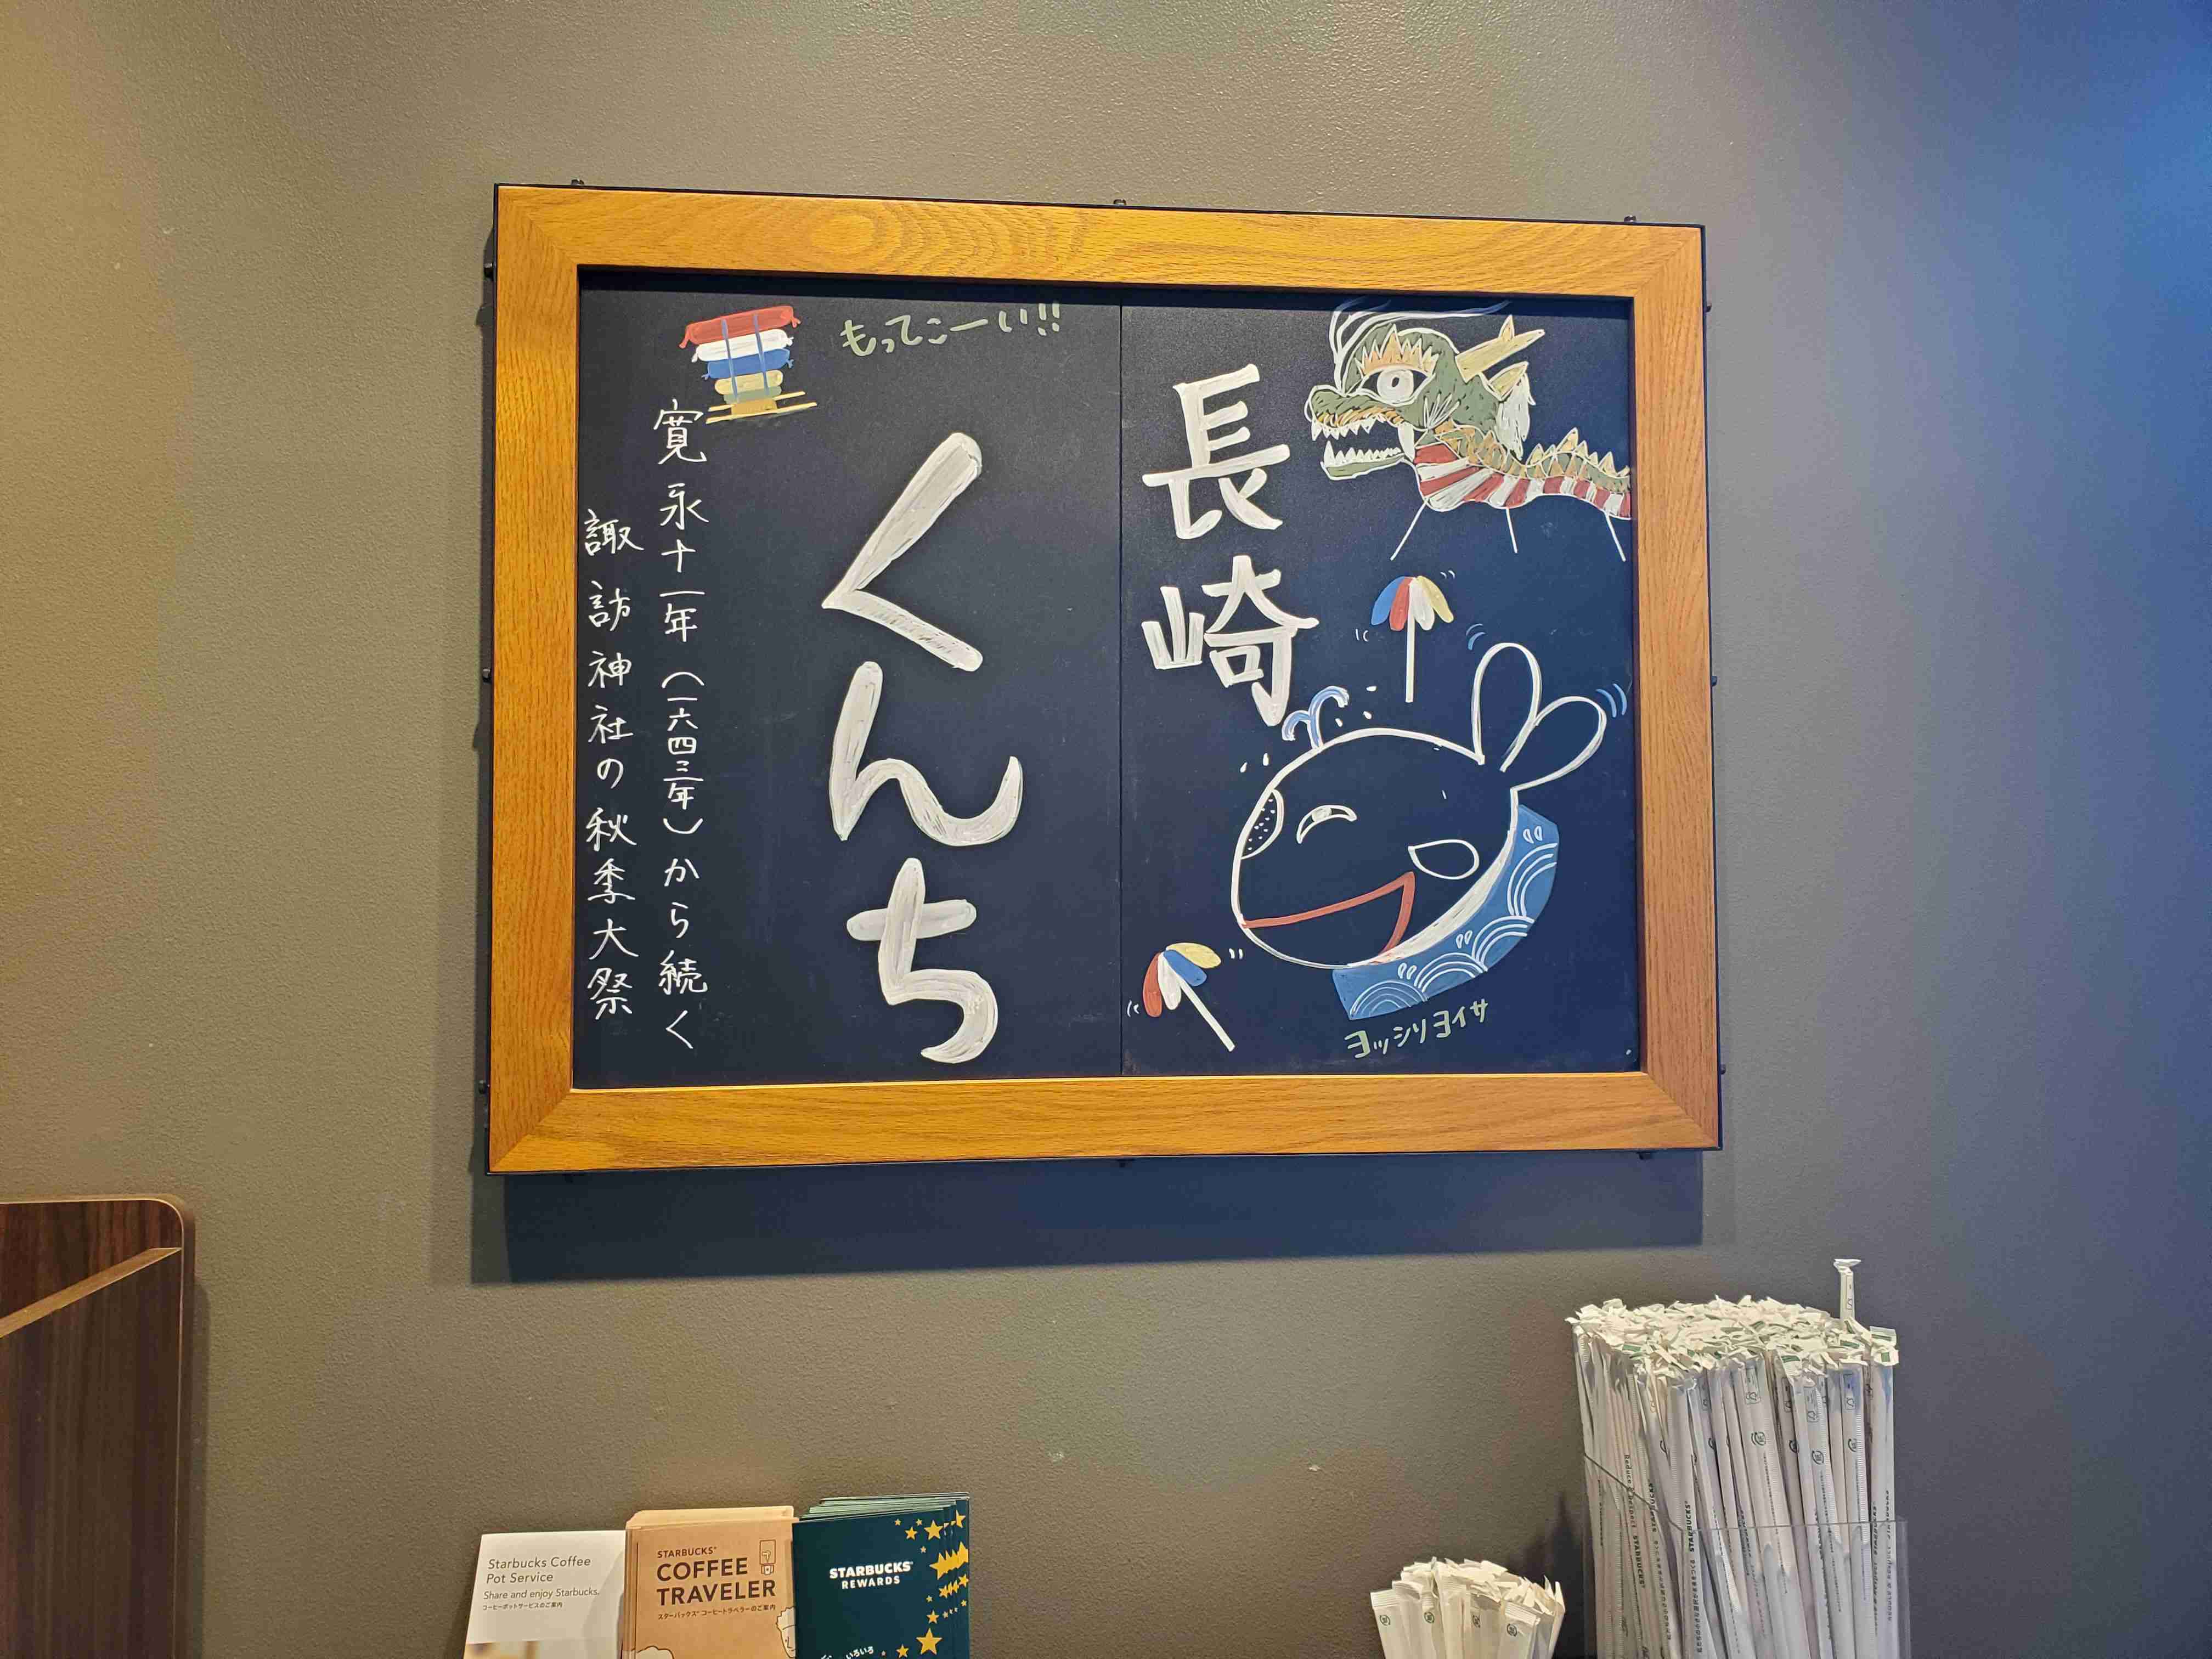 長崎
くんち
もってこーい!!
寛永十一年(一六四三年)から続く
諏訪神社の秋季大祭
ヨッシリヨイサ
Starbucks Coffee
Pot Service
Share and enjoy Starbucks.
コーヒーポットサービスのご案内
STARBUCKS®
COFFEE
TRAVELER
スターバックス® コーヒートラベラーのご案内
STARBUCKS®
REWARDS
いろいろ
STARBUCKS®